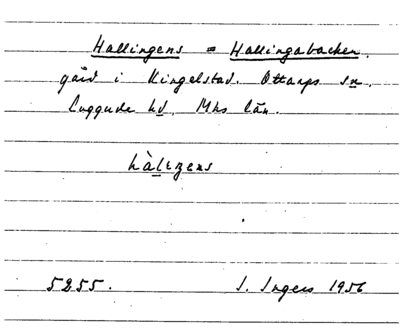 Hallingens = Hallingabacken.
gård i Ringelstad. Ottarps sn.
Luggude hd. Mhs län.
hàlizens
5255. I. Ingers 1956